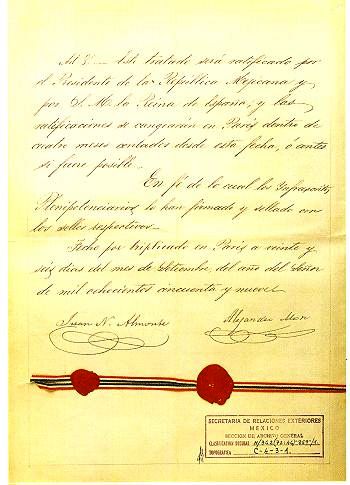 Art. 5.— Este tratado será ratificado por
el Presidente de la República Mexicana y
por S. M. la Reina de España, y las
ratificaciones se cangearán en Paris dentro de
cuatro meses contados desde esta fecha, ó antes
si fuere posible.—
En fé de lo cual los Infrascritos
Plenipotenciarios lo han firmado y sellado con
los sellos respectivos.
Fecho por triplicado en Paris a veinte y
seis dias del mes de Setiembre del año del Señor
de mil ochocientos cincuenta y nueve.
Juan N. Almonte
Alejandro Mon
SECRETARIA DE RELACIONES EXTERIORES
MEXICO
SECCION DE ARCHIVO GENERAL
CLASIFICACION DECIMAL
TOPOGRAFICA C-4-3-1.